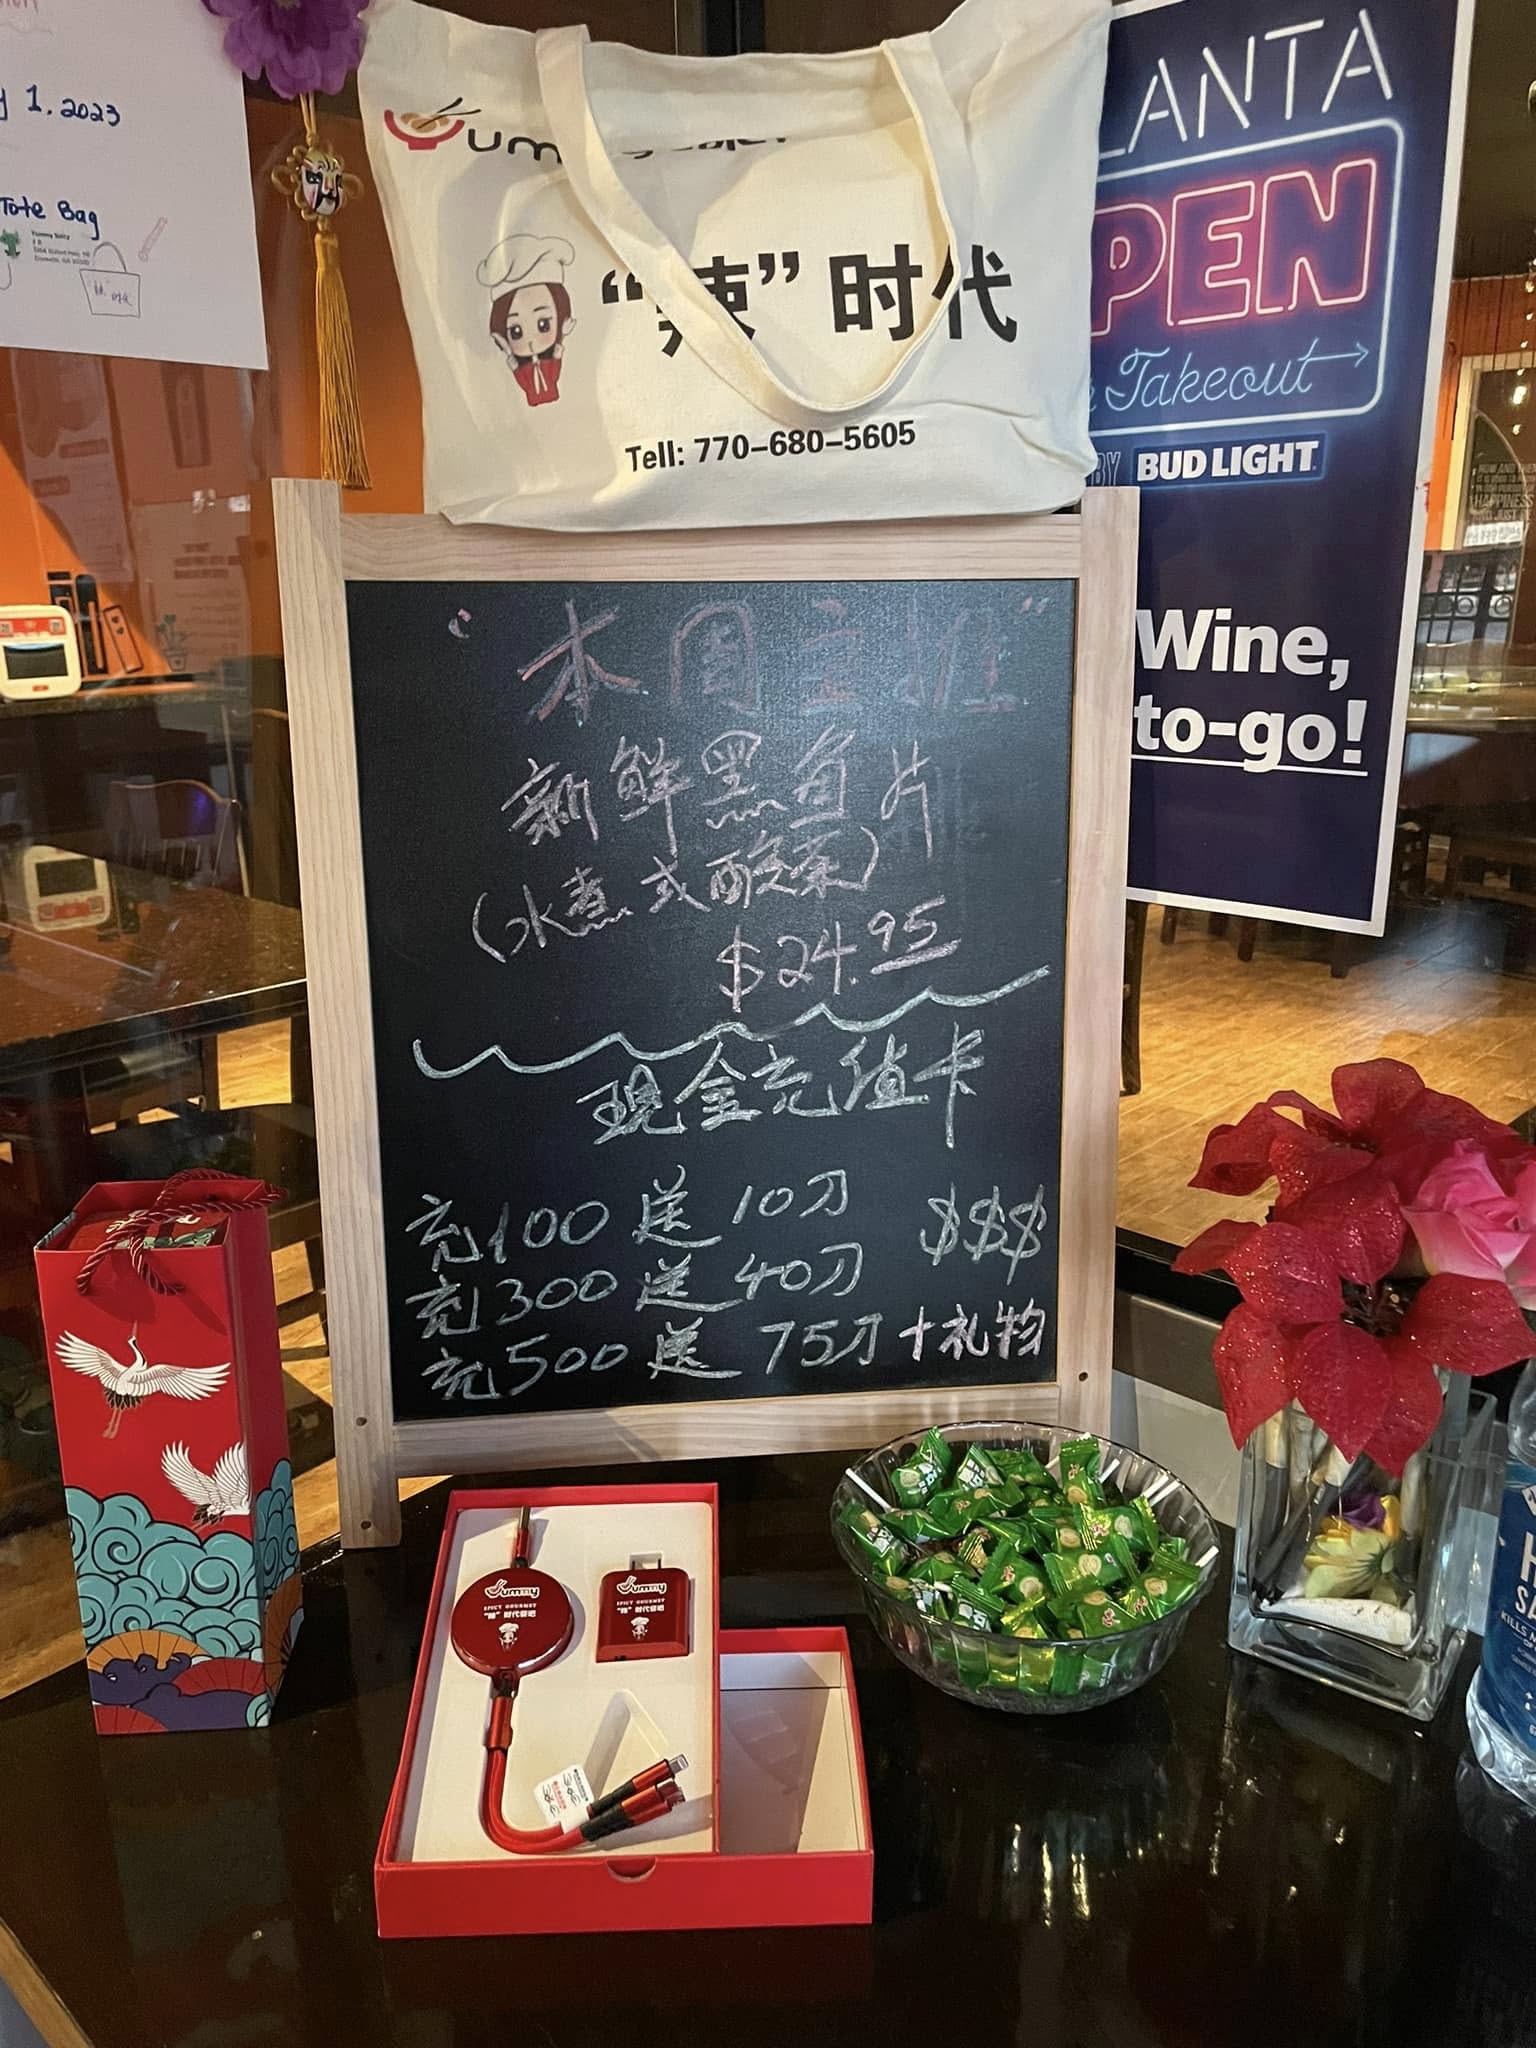 y 1. 2023
Tote Bag
Yummy Spicy
ummy
“辣” 时代
Tell: 770-680-5605
LANTA
PEN
Takeout
BY BUD LIGHT
Wine,
to-go!
“本周主推”
新鲜黑鱼片
(水煮或酸菜)
$24.95
现金充值卡
充100 送 10刀
充300 送 40刀 $$$
充500 送 75刀 + 礼物
Yummy
SPICY GOURMET
“辣”时代餐吧
Yummy
SPICY GOURMET
“辣”时代餐吧
HAPPINESS
KILLS